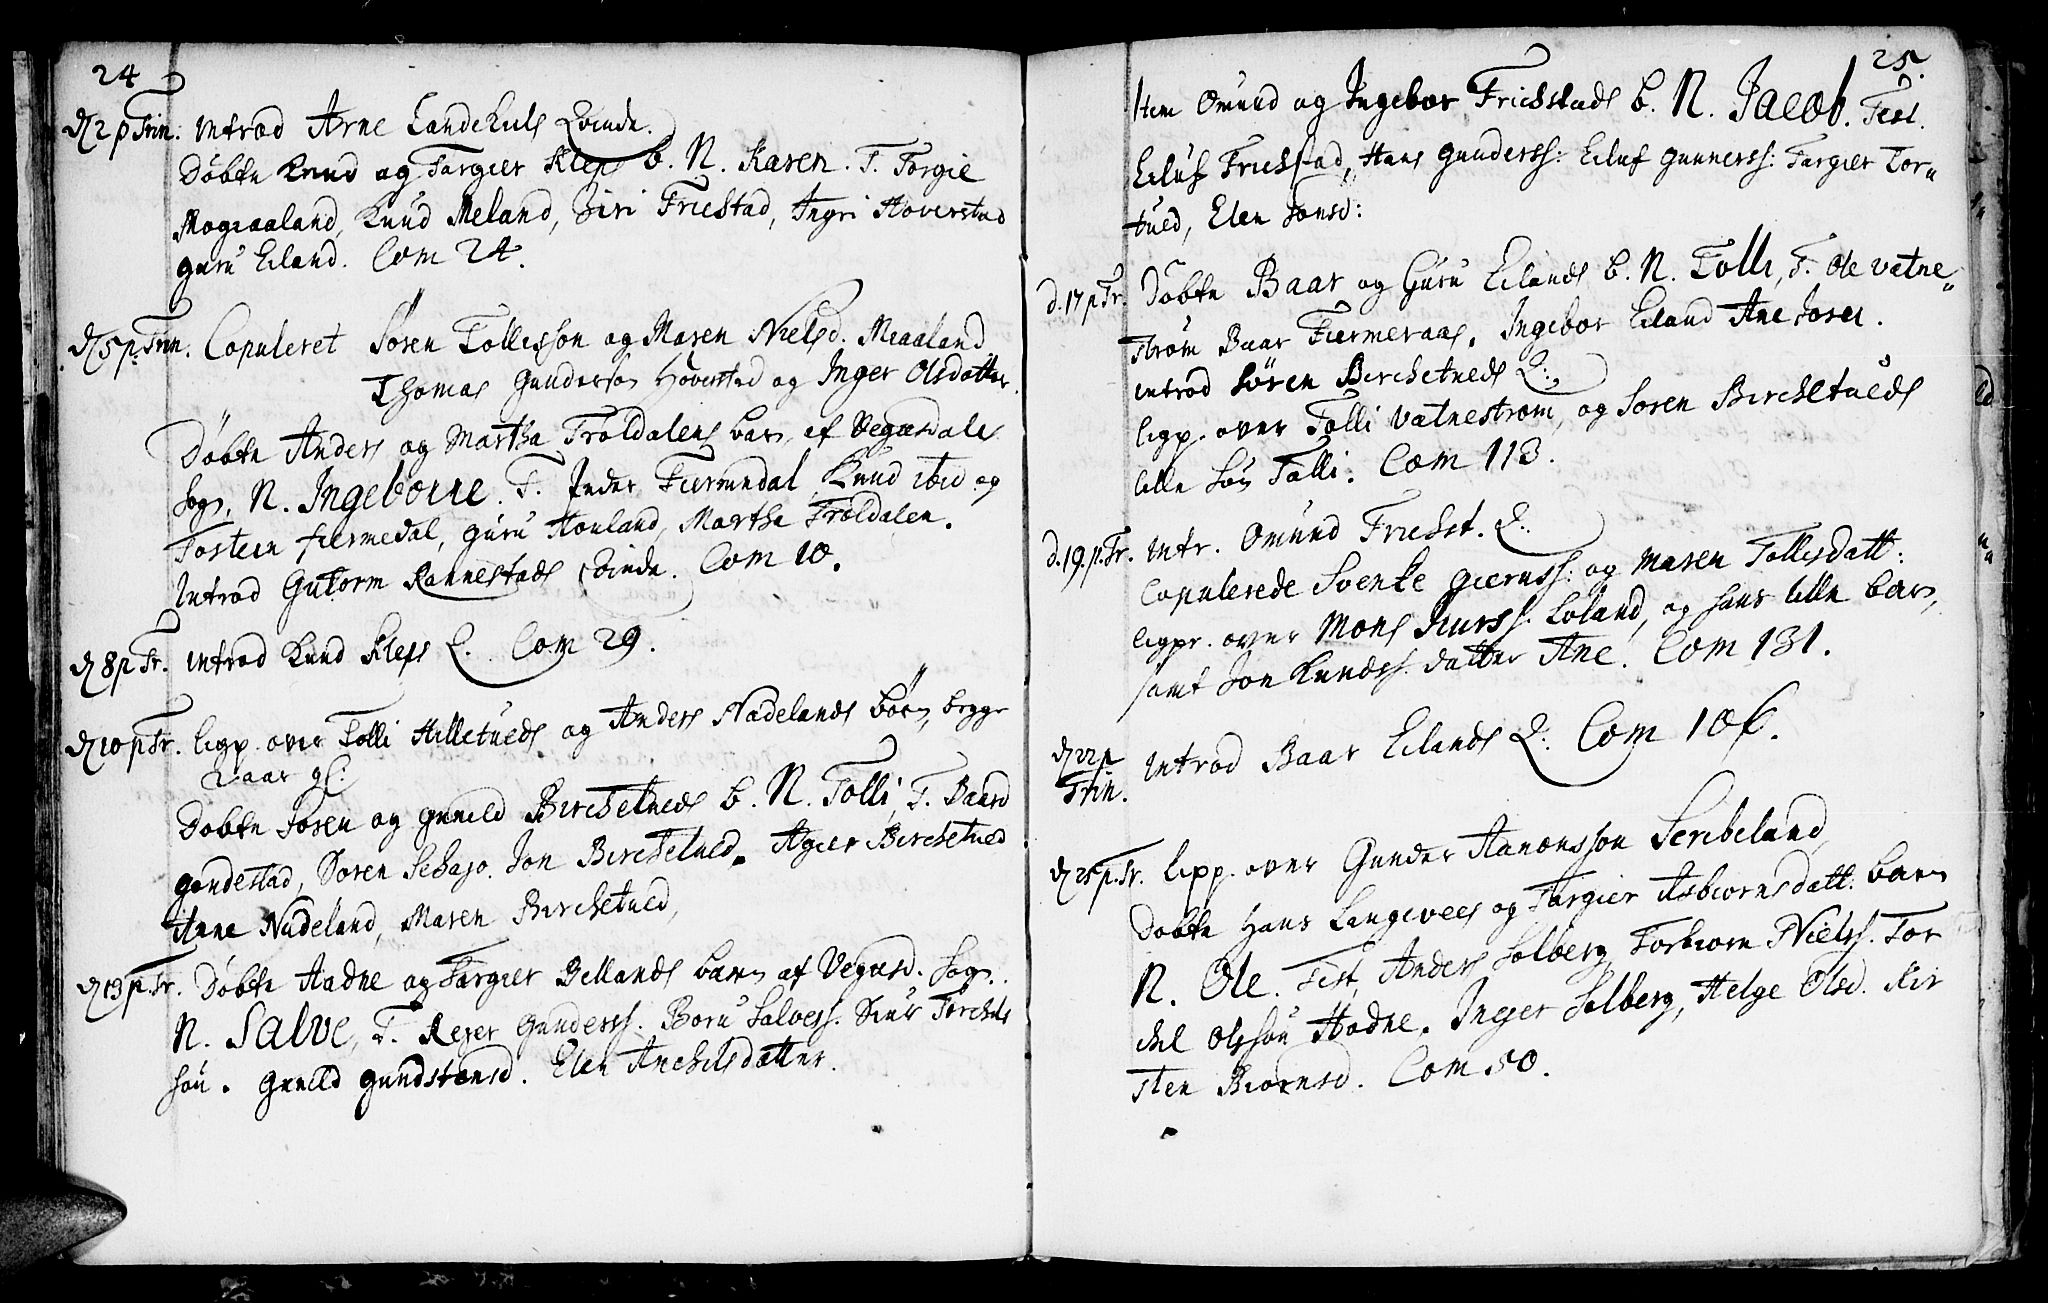 24
D 2 p Trin. Introd Arne Landekiils Qvinde.
Døbte Knud og Targier Kleps b. N. Karen. T. Torgie
Mogiaaland, Knud Meland, Siri Friestad, Ingri Hoverstad
guru Eiland. Com 24.
D 5 p. Trin. Copuleret Sören Tollisson og Maren Nielsd. Meaaland
Thomas Gunderson Hoverstad og Inger Olsdatter.
Døbte Anders og Martha Troldalens barn, af Vegusdals
Sogn. N. Ingeborre. T. Peder Fiermedal, Knud ibid og
Tosteen fiermedal, guru Houland, Martha Troldalen.
Introd Gutorm Rannestads Qvinde. Com 10.
D 8 p Tr. Introd Knud Kleps Q. Com 29.
D 10 p Tr. ligp. over Tolli Hilletveds og Anders Nadelands børn, begge
2 aar gl:
Dobte Soren og gunild Birchetveds b. N. Tolli, T. Baard
gondestad, Soren Jon Birchetved. Agier Birchetved
Anne Nadeland, Maren Birchetved,
D 13 p Tr. Døbte Aadne og Targier Bellands barn af Vegusd. Sogn.
N. Salve, T. Reier Gunderss. Boru Salvess. Siur Torchels
søn. Gunild gundstensd. Elen Anchilsdatter.
25.
Item Omund og Ingebor Frichstads b. N. Jacob. Test.
Eiluf Frichstad, Hans Gunderss: Eiluf gunnerss: Targier Tor
tved, Elen Jonsd:
d. 17 p Tr. Døbte Baar og Guru Eilands b. N. Tolli, T. Ole Vatne
strøm Baar Fiermeraas. Ingebor Eiland Ane
introd Sören Birchetveds Q.
ligp. over Tolli Vatnestrøm, og Soren Birchetveds
lille Søn Tolli. Com 113.
d. 19. p. Tr. Intr. Omund Frichst. Q.
Copulerede Svenke og Maren Tollisdatt:
ligpr. over Mons Loland, og hans lille barn,
samt Jon Knudss. datter Ane. Com 131.
D 22 p
Trin.
Introd Baar Eilands Q. Com 106.
D 25 p. Tr. ligp. over Gunder Aanonsson Scribeland,
Dobte Hans Langevees og Targier Asbiornsdatt: barn
N. Ole. Test, Anders Solberg, Torbiorn Nielss. Tor
chel Olssøn Hodne. Inger Solberg, Helge Olsd. Kir
sten Biornsd. Com 50.